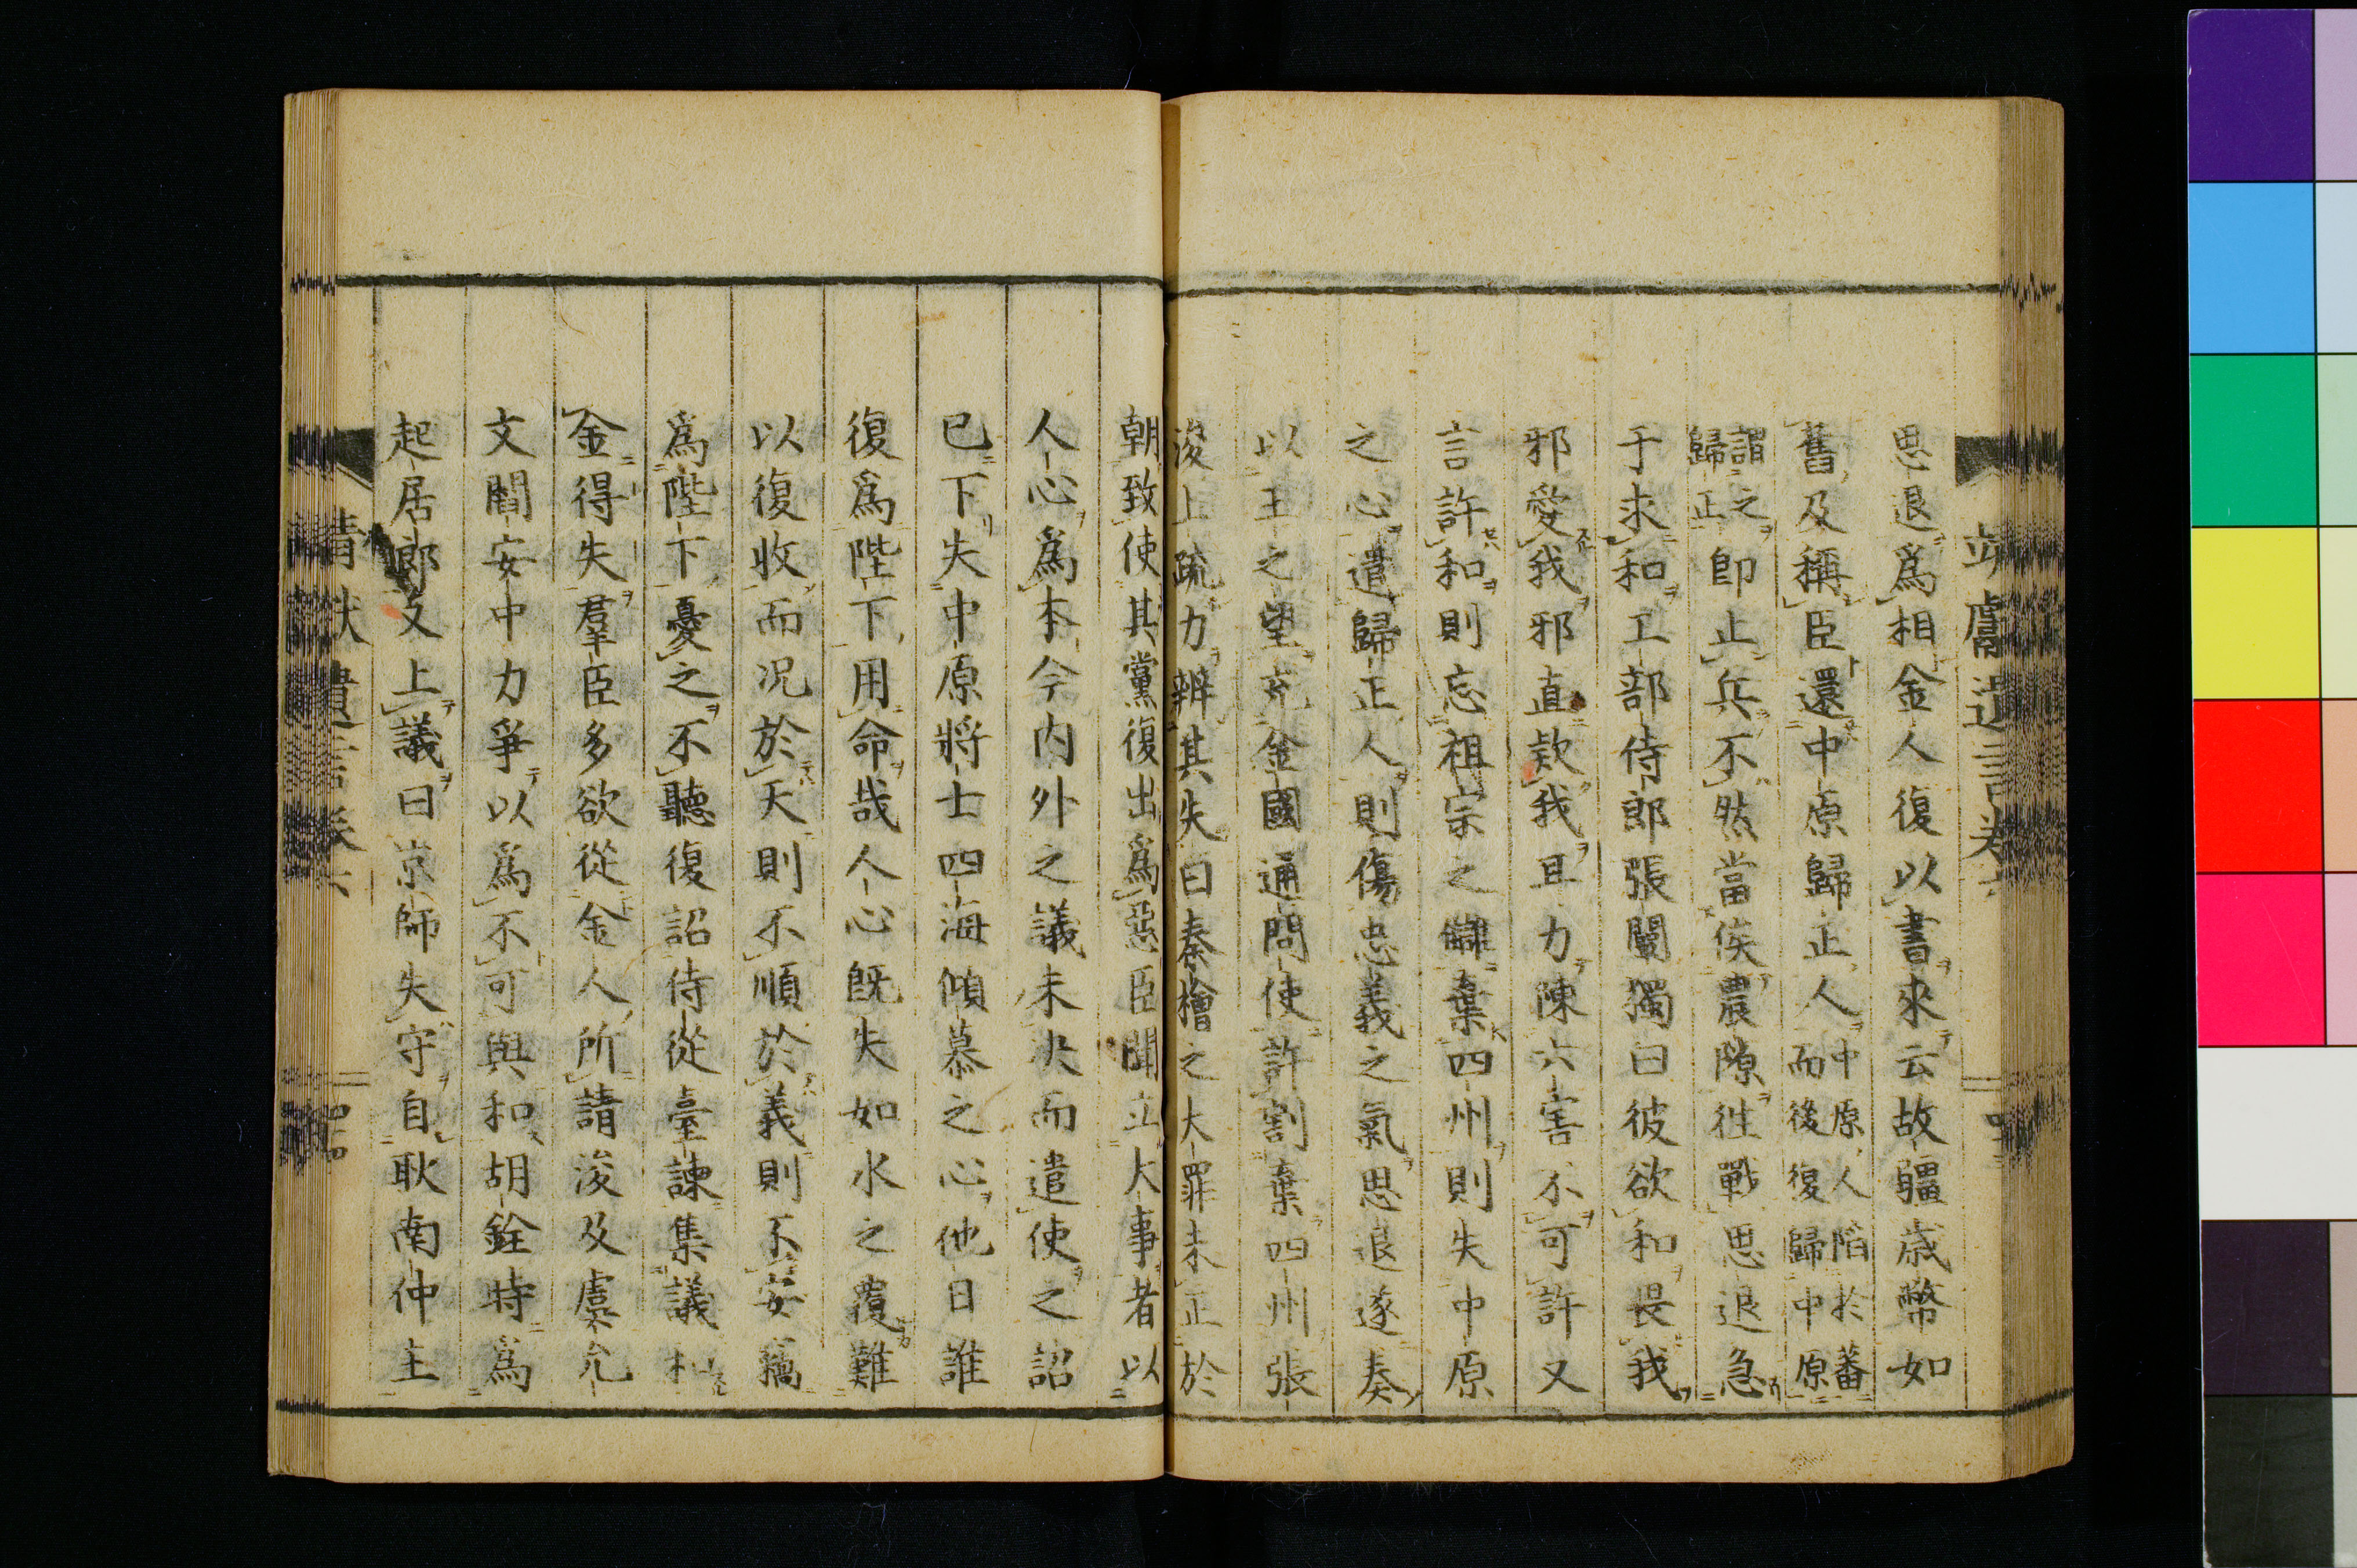 思退爲相金人復以書來云故疆歳幣如
舊及稱臣還中原歸正人中原人陷於蕃而後復歸中原
謂之歸正即止兵不然當俟農隙往戰思退急
于求和工部侍郎張闡獨曰彼欲和畏我
邪愛我邪直款我且力陳六害不可許又
言許和則忘祖宗之讎棄四州則失中原
之心遣歸正人則傷忠義之氣思退遂奏
以王之望充金國通問使許割棄四州張
浚上疏力辨其失曰秦檜之大罪未正於
朝致使其黨復出爲惡臣聞立大事者以
人心爲本今内外之議未決而遣使之詔
已下失中原將士四海傾慕之心他日誰
復爲陛下用命哉人心既失如水之覆難
以復收而况於天則不順於義則不安竊
爲陛下憂之不聽復詔侍從臺諫集議和
金得失羣臣多欲從金人所請浚及虞允
文閻安中力爭以爲不可與和胡銓時爲
起居郎又上議曰京師失守自耿南仲主
靖献遺言巻六
四四